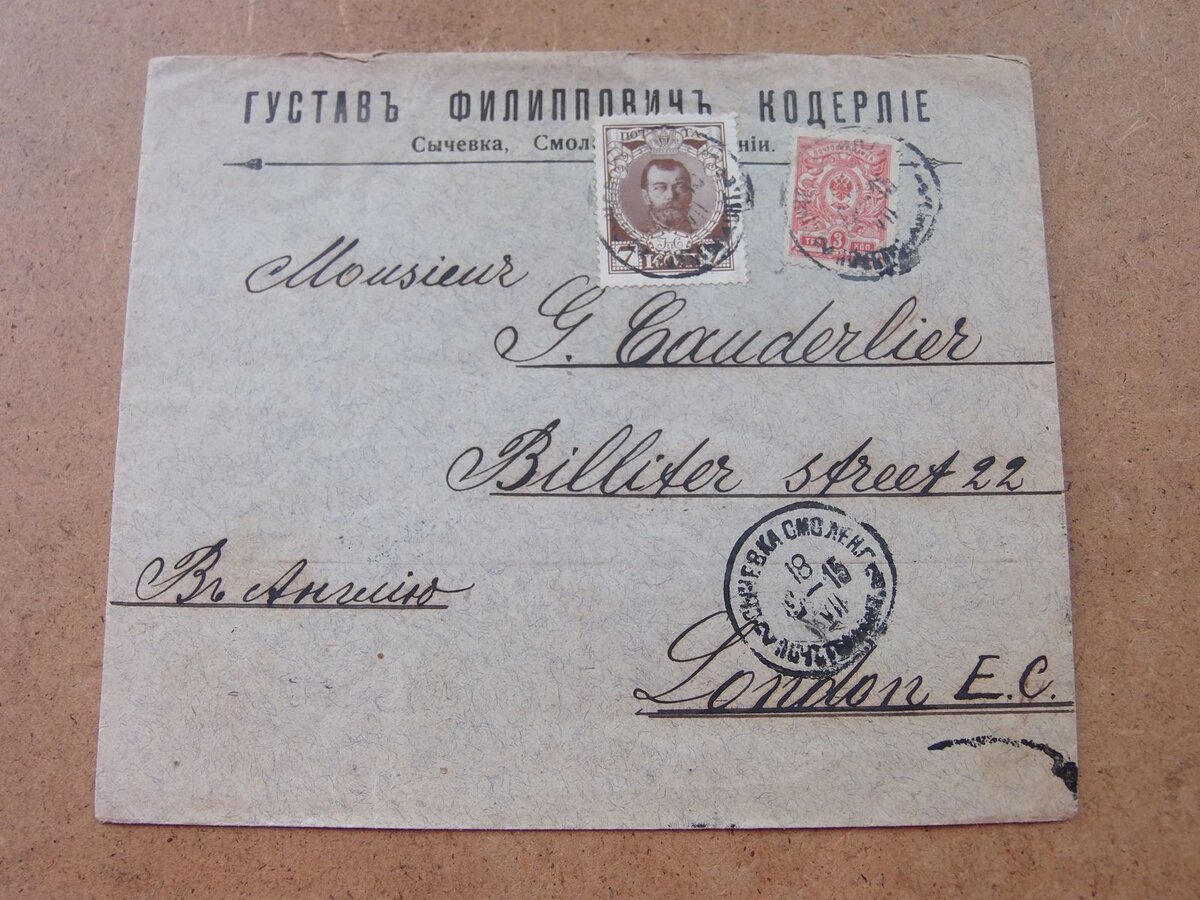 ГУСТАВЪ ФИЛИППОВИЧЪ КОДЕРЛІЕ
Сычевка, Смол ніи.
ПОЧТА
7 7
3 КОП.
Monsieur
G. Cauderlier
Billiter street 22
Въ Англію
СЫЧЕВКА СМОЛЕН.Г.
18
VII
15
London E.C.